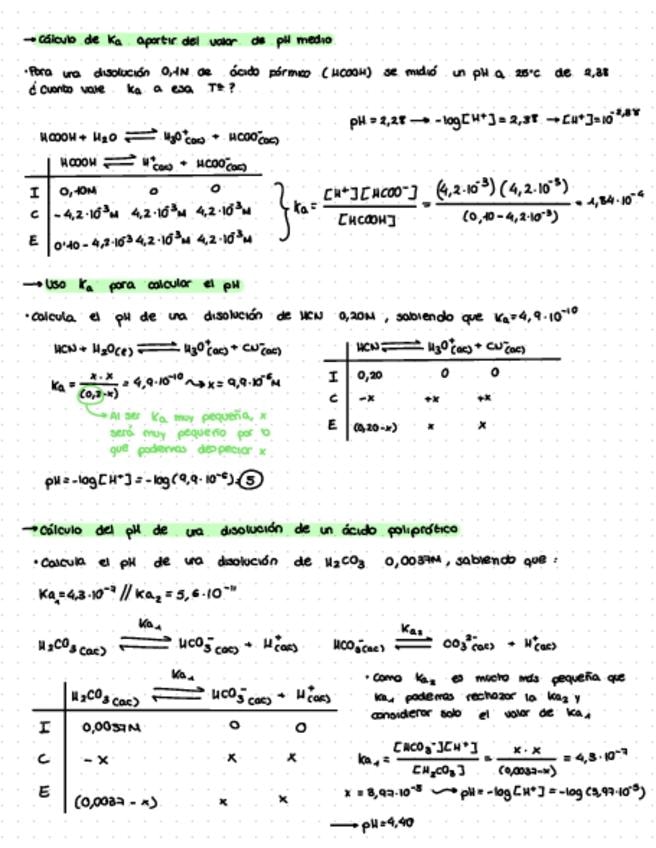 → Cálculo de Ka apartir del valor de pH medio
• Para una disolución 0,1N de ácido fórmico (HCOOH) se midió un pH a 25°C de 2,38
¿ Cuanto vale Ka a esa Tª?
pH = 2,28 → -log[H⁺] = 2,38 → [H⁺]=10⁻²,³⁸
HCOOH + H₂O ⇌ H₃O⁺(ac) + HCOO⁻(ac)
HCOOH ⇌ H⁺(ac) + HCOO⁻(ac)
I 0,10M 0 0
C -4,2·10⁻³M 4,2·10⁻³M 4,2·10⁻³M
E 0'10 - 4,2·10⁻³ 4,2·10⁻³M 4,2·10⁻³M
Ka = [H⁺][HCOO⁻] / [HCOOH] = (4,2·10⁻³)(4,2·10⁻³) / (0,10 - 4,2·10⁻³) = 1,84·10⁻⁴
→ Uso Ka para calcular el pH
• Calcula el pH de una disolución de HCN 0,20M, sabiendo que Ka=4,9·10⁻¹⁰
HCN + H₂O(l) ⇌ H₃O⁺(ac) + CN⁻(ac)
Ka = x·x / (0,2-x) = 4,9·10⁻¹⁰ → x = 9,9·10⁻⁶M
Al ser Ka muy pequeña, x
será muy pequeño por lo
que podemos despreciar x
HCN ⇌ H₃O⁺(ac) + CN⁻(ac)
I 0,20 0 0
C -x +x +x
E (0,20-x) x x
pH = -log[H⁺] = -log(9,9·10⁻⁶) = 5
→ Cálculo del pH de una disolución de un ácido poliprótico
• Calcula el pH de una disolución de H₂CO₃ 0,0037M, sabiendo que :
Ka₁=4,3·10⁻⁷ // Ka₂ = 5,6·10⁻¹¹
H₂CO₃(ac) ⇌ Ka₁ HCO₃⁻(ac) + H⁺(ac)
HCO₃⁻(ac) ⇌ Ka₂ CO₃²⁻(ac) + H⁺(ac)
H₂CO₃(ac) ⇌ Ka₁ HCO₃⁻(ac) + H⁺(ac)
I 0,0037M 0 0
C -x x x
E (0,0037 - x) x x
• Como Ka₂ es mucho más pequeña que
Ka₁ podemos rechazar la Ka₂ y
considerar solo el valor de Ka₁
Ka₁ = [HCO₃⁻][H⁺] / [H₂CO₃] = x·x / (0,0037-x) = 4,3·10⁻⁷
x = 3,97·10⁻⁵ → pH = -log[H⁺] = -log(3,97·10⁻⁵)
→ pH = 4,40